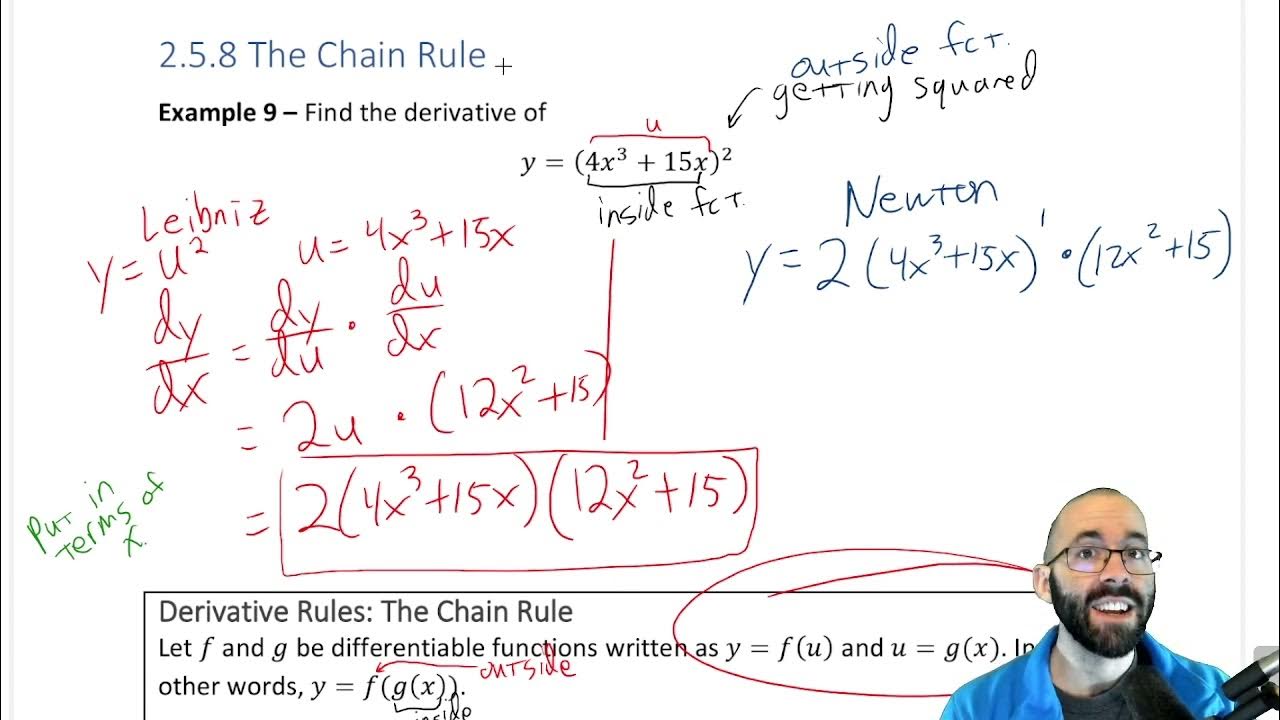 2.5.8 The Chain Rule
outside fct.
getting squared
Example 9 – Find the derivative of
u
y = (4x³ + 15x)²
inside fct.
Leibniz
y = u² u = 4x³+15x
dy/dx = dy/du · du/dx
= 2u · (12x²+15)
= 2(4x³+15x)(12x²+15)
Put in
terms of
x.
Newton
y = 2(4x³+15x)¹ · (12x²+15)
Derivative Rules: The Chain Rule
Let f and g be differentiable functions written as y = f(u) and u = g(x). In
other words, y = f(g(x)).
outside
inside